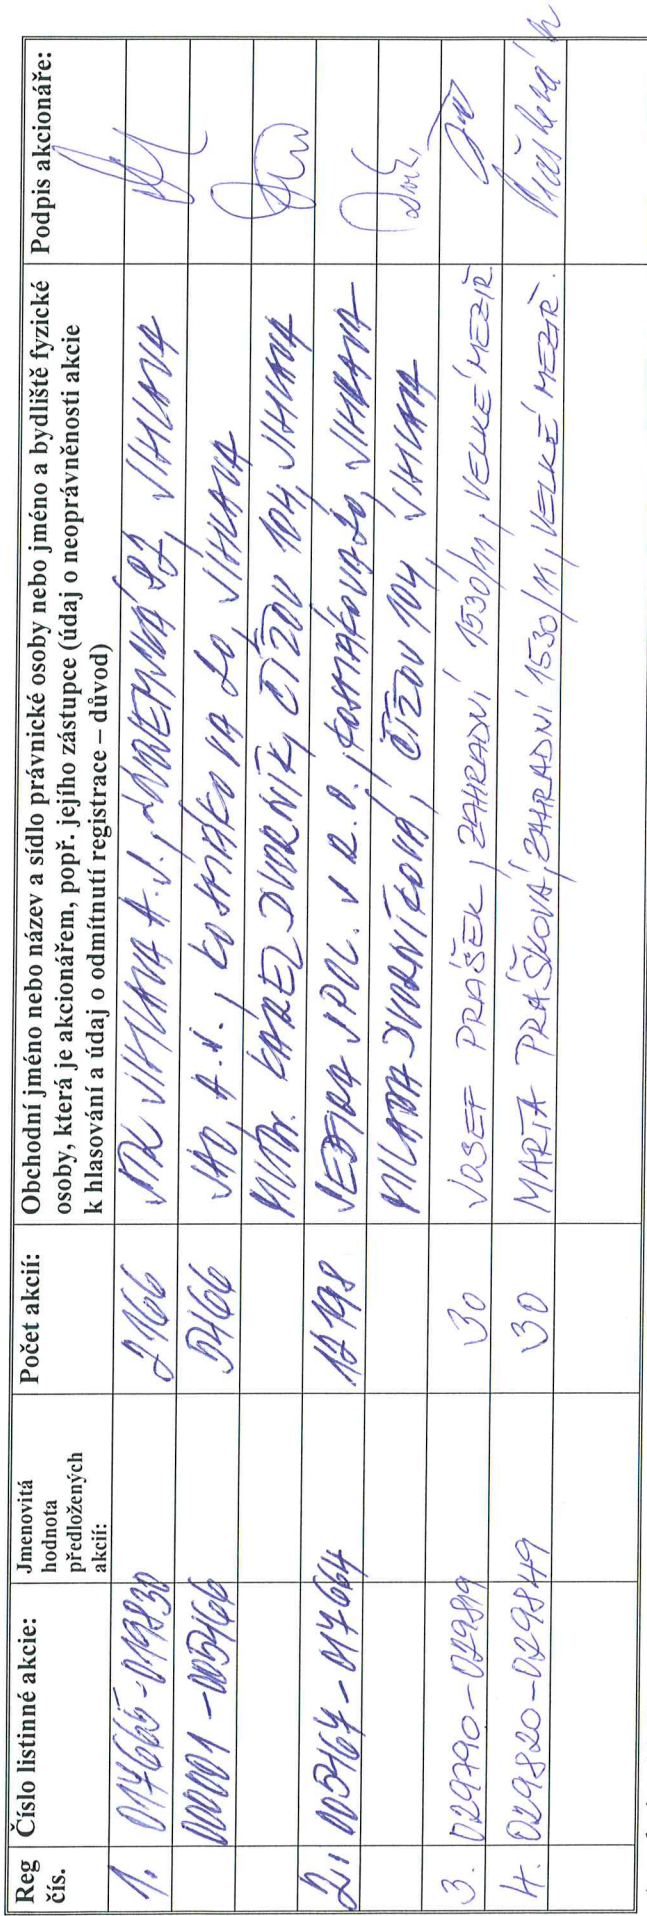 Reg čís.
Číslo listinné akcie:
Jmenovitá hodnota předložených akcií:
Počet akcií:
Obchodní jméno nebo název a sídlo právnické osoby nebo jméno a bydliště fyzické
osoby, která je akcionářem, popř. jejího zástupce (údaj o neoprávněnosti akcie
k hlasování a údaj o odmítnutí registrace – důvod)
Podpis akcionáře:
1. 017665-019830 2166 JIHLAVA A.S., JIHLAVA
000001-005466 5466 A.S., KOSMÁKOVA 20, JIHLAVA
KAREL DVORNÍK, ČÍŽOV 104, JIHLAVA
2. 005467-017664 12198 SPOL. S R.O., KOSMÁKOVA 20, JIHLAVA
MILADA DVORNÍKOVÁ, ČÍŽOV 104, JIHLAVA
3. 029790-029819 30 JOSEF PRÁŠEK, ZAHRADNÍ 1530/11, VELKÉ MEZIŘ.
4. 029820-029849 30 MARTA PRÁŠKOVÁ, ZAHRADNÍ 1530/11, VELKÉ MEZIŘ. Prášková